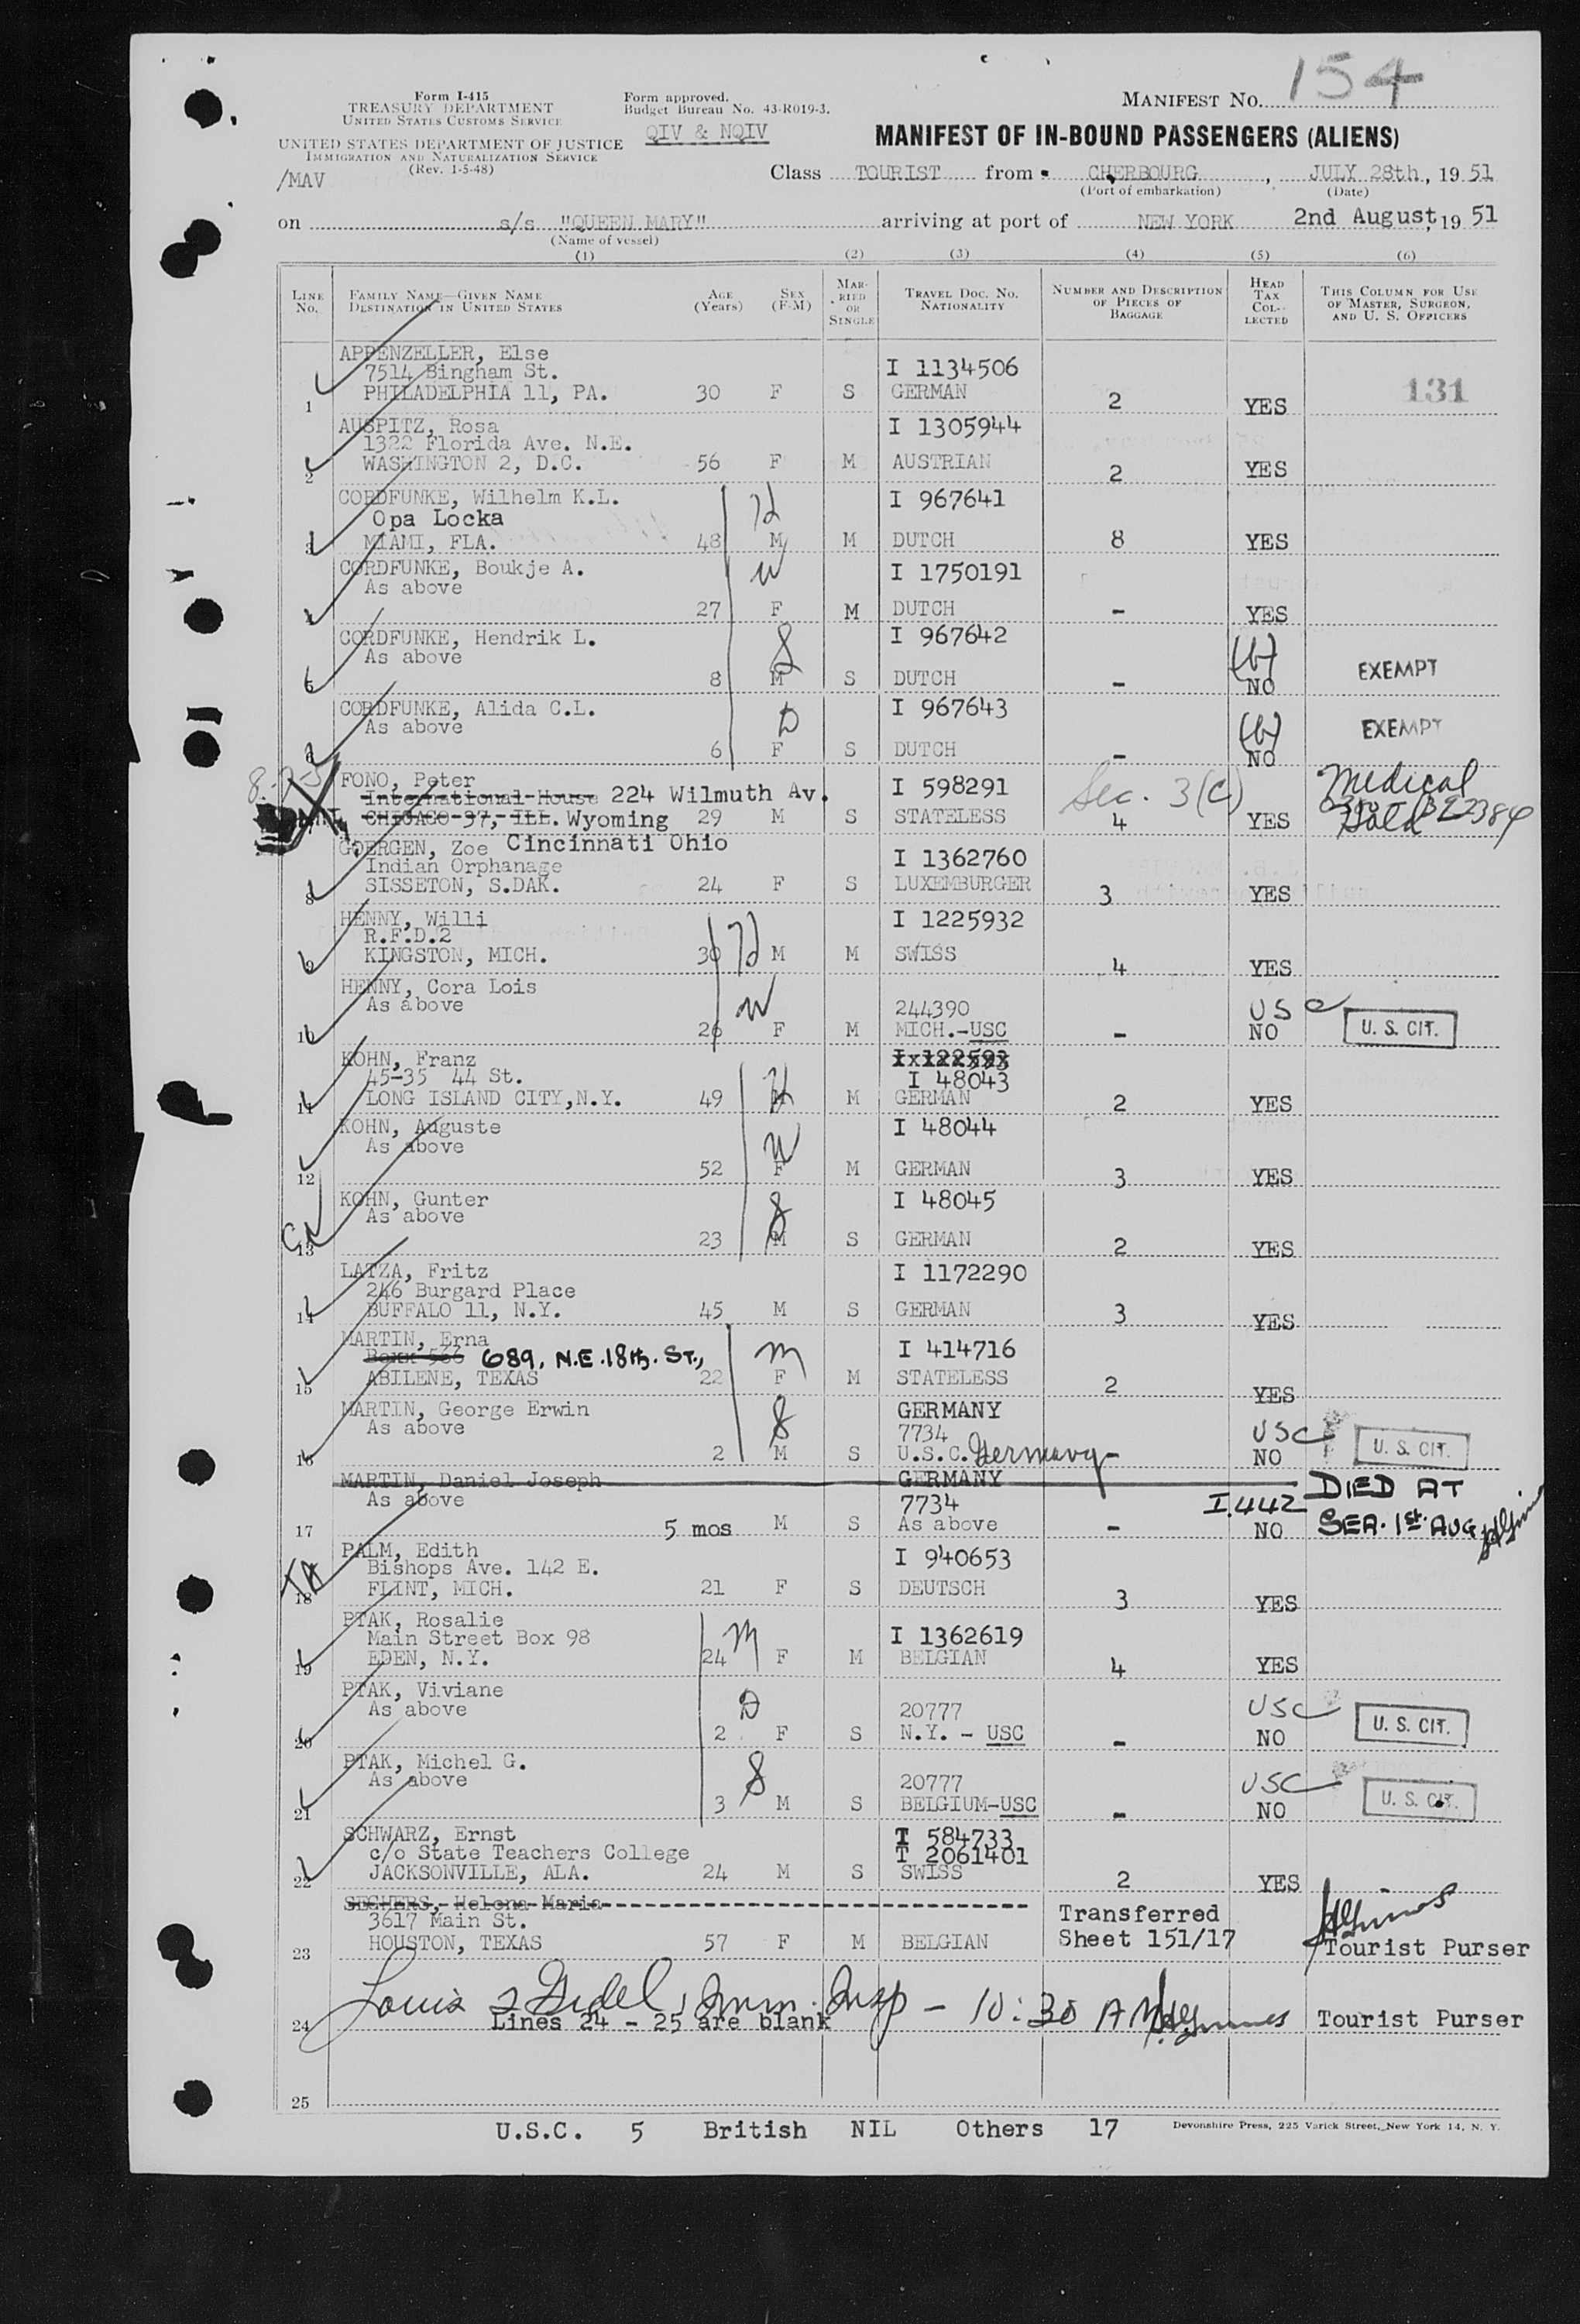 Form I-415
TREASURY DEPARTMENT
UNITED STATES CUSTOMS SERVICE
UNITED STATES DEPARTMENT OF JUSTICE
IMMIGRATION AND NATURALIZATION SERVICE
(Rev. 1-5-48)
/MAV
Form approved.
Budget Bureau No. 43-R019-3.
QIV & NQIV
MANIFEST NO. 154
MANIFEST OF IN-BOUND PASSENGERS (ALIENS)
Class TOURIST from CHERBOURG, JULY 28th, 19 51
(Port of embarkation) (Date)
on s/s "QUEEN MARY" arriving at port of NEW YORK 2nd August, 19 51
(Name of vessel)
(1) (2) (3) (4) (5) (6)
LINE NO. FAMILY NAME—GIVEN NAME DESTINATION IN UNITED STATES AGE (Years) SEX (F-M) MARRIED OR SINGLE TRAVEL DOC. NO. NATIONALITY NUMBER AND DESCRIPTION OF PIECES OF BAGGAGE HEAD TAX COLLECTED THIS COLUMN FOR USE OF MASTER, SURGEON, AND U. S. OFFICERS
APPENZELLER, Else I 1134506
7514 Bingham St.
1 PHILADELPHIA 11, PA. 30 F S GERMAN 2 YES 131
AUSPITZ, Rosa I 1305944
1322 Florida Ave. N.E.
2 WASHINGTON 2, D.C. 56 F M AUSTRIAN 2 YES
CORDFUNKE, Wilhelm K.L. H I 967641
Opa Locka
3 MIAMI, FLA. 48 M M DUTCH 8 YES
CORDFUNKE, Boukje A. W I 1750191
As above
4 27 F M DUTCH - YES
CORDFUNKE, Hendrik L. S I 967642
As above (b) EXEMPT
5 8 M S DUTCH - NO
CORDFUNKE, Alida C.L. D I 967643
As above (b) EXEMPT
6 6 F S DUTCH - NO
FONO, Peter I 598291 Sec. 3(c) Medical
International House 224 Wilmuth Av.
CHICAGO 37, ILL. Wyoming 29 M S STATELESS 4 YES Hold
Cincinnati Ohio
GOERGEN, Zoe I 1362760
Indian Orphanage
8 SISSETON, S.DAK. 24 F S LUXEMBURGER 3 YES
HENNY, Willi H I 1225932
R.F.D.2
9 KINGSTON, MICH. 30 M M SWISS 4 YES
HENNY, Cora Lois W
As above 244390 USC
10 26 F M MICH.-USC - NO U. S. CIT.
KOHN, Franz I 122593
45-35 44 St. H I 48043
11 LONG ISLAND CITY, N.Y. 49 M GERMAN 2 YES
KOHN, Auguste W I 48044
As above
12 52 F M GERMAN 3 YES
KOHN, Gunter S I 48045
As above
13 23 M S GERMAN 2 YES
LATZA, Fritz I 1172290
246 Burgard Place
14 BUFFALO 11, N.Y. 45 M S GERMAN 3 YES
MARTIN, Erna M I 414716
689, N.E. 18th. ST.,
15 ABILENE, TEXAS 22 F M STATELESS 2 YES
MARTIN, George Erwin S GERMANY
As above 7734 USC
16 2 M S U.S.C. Germany - NO U. S. CIT.
MARTIN, Daniel Joseph GERMANY DIED AT
As above 7734 I.442
17 5 mos M S As above - NO SEA. 1st. AUG
PALM, Edith I 940653
Bishops Ave. 142 E.
18 FLINT, MICH. 21 F S DEUTSCH 3 YES
PTAK, Rosalie M
Main Street Box 98 I 1362619
19 EDEN, N.Y. 24 F M BELGIAN 4 YES
PTAK, Viviane D
As above 20777 USC
20 2 F S N.Y. - USC - NO U. S. CIT.
PTAK, Michel G. S
As above 20777 USC
21 3 M S BELGIUM-USC - NO U. S. CIT.
SCHWARZ, Ernst I 584733
c/o State Teachers College T 2061401
22 JACKSONVILLE, ALA. 24 M S SWISS 2 YES
SEGHERS, Helena Maria
3617 Main St. Transferred
23 HOUSTON, TEXAS 57 F M BELGIAN Sheet 151/17 Tourist Purser
Louis Imm. Insp - 10:30 AM
24 Lines 24 - 25 are blank Tourist Purser
25
U.S.C. 5 British NIL Others 17 Devonshire Press, 225 Varick Street, New York 14, N. Y.